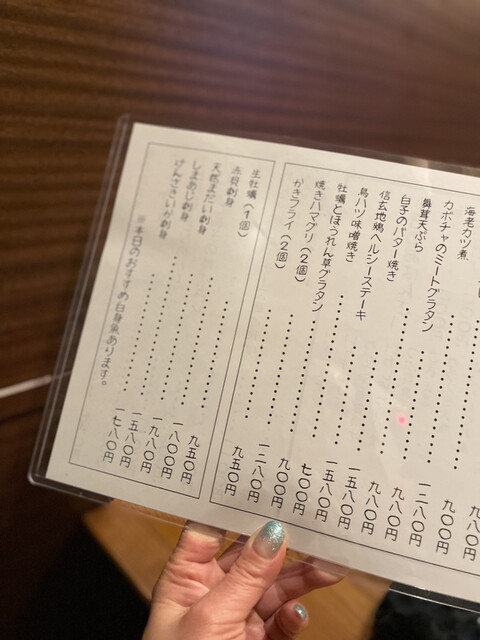 九八〇円
九〇〇円
海老カツ煮 一二八〇円
カボチャのミートグラタン 九八〇円
舞茸天ぷら 九八〇円
白子のバター焼き 一五八〇円
信玄地鶏ヘルシーステーキ 一五八〇円
鳥ハツ味噌焼き 七〇〇円
牡蠣とほうれん草グラタン 九〇〇円
焼きハマグリ(2個) 一二八〇円
かきフライ(2個) 九五〇円
生牡蠣(1個) 九五〇円
赤貝刺身 一八〇〇円
天然まだい刺身 一九八〇円
しまあじ刺身 一五八〇円
けんさきいか刺身 一七八〇円
※本日のおすすめ白身魚あります。